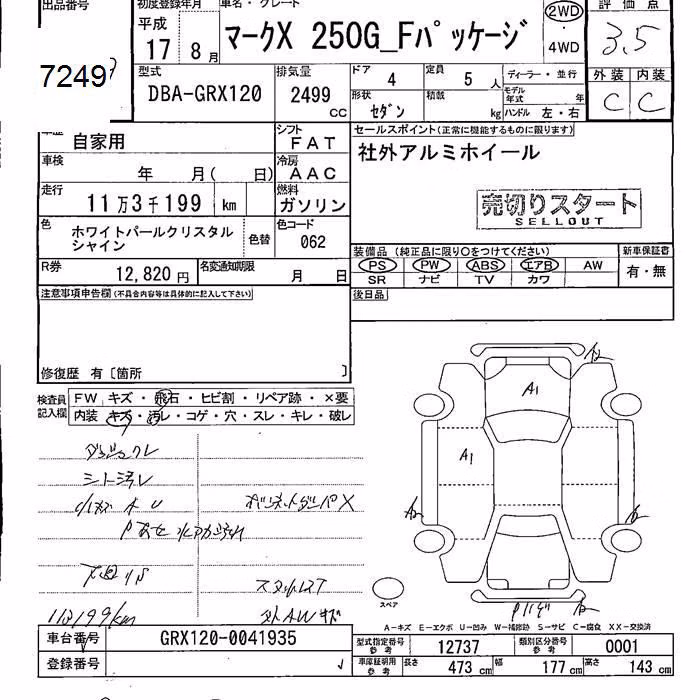 出品番号
初度登録年月
車名・グレード
2WD
・
4WD
評価点
3.5
平成
17 8 月
マークX 250G_Fパッケージ
7249
型式
DBA-GRX120
排気量
2499
CC
ドア 4
定員 5 人
ディーラー・並行
形状
セダン
積載
kg
モデル年式 年
ハンドル 左・右
外装 内装
C C
自家用
シフト
FAT
セールスポイント(正常に機能するものに限ります)
社外アルミホイール
車検
年 月( 日)
冷房
AAC
走行
11万3千199 km
燃料
ガソリン
売切りスタート
SELLOUT
色
ホワイトパールクリスタルシャイン
色替
色コード
062
装備品 (純正品に限り○をつけてください)
新車保証書
PS PW ABS エアB AW
有・無
SR ナビ TV カワ
R券
12,820 円
名変通知期限
月 日
後日品
注意事項申告欄(不具合内容等は具体的に記入して下さい)
修復歴 有〔箇所 〕
検査員記入欄
FW キズ・飛石・ヒビ割・リペア跡・×要
内装 キズ・汚レ・コゲ・穴・スレ・キレ・破レ
A1
A1
シート汚レ
ボンネットダンパX
スタットレスT
113199km
外AWキズ
スペア
A−キズ E−エクボ U−凹み W−補修跡 S−サビ C−腐食 XX−交換済
車台番号
GRX120-0041935
型式指定番号参考
12737
類別区分番号参考
0001
登録番号
車庫証明用参考
長さ 473 cm
幅 177 cm
高さ 143 cm